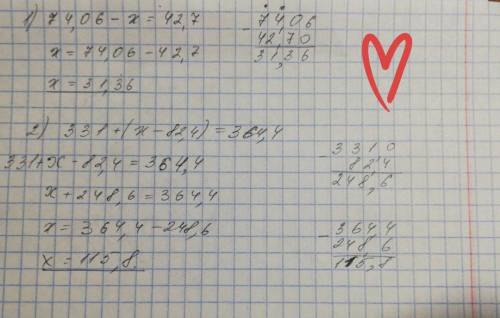 1) 74,06 - x = 42,7
x = 74,06 - 42,7
x = 31,36
- 74,06
42,70
31,36
2) 331 + (x - 82,4) = 364,4
331 + x - 82,4 = 364,4
x + 248,6 = 364,4
x = 364,4 - 248,6
x = 115,8
- 331 0
82 4
248,6
- 364 4
248,6
115,8